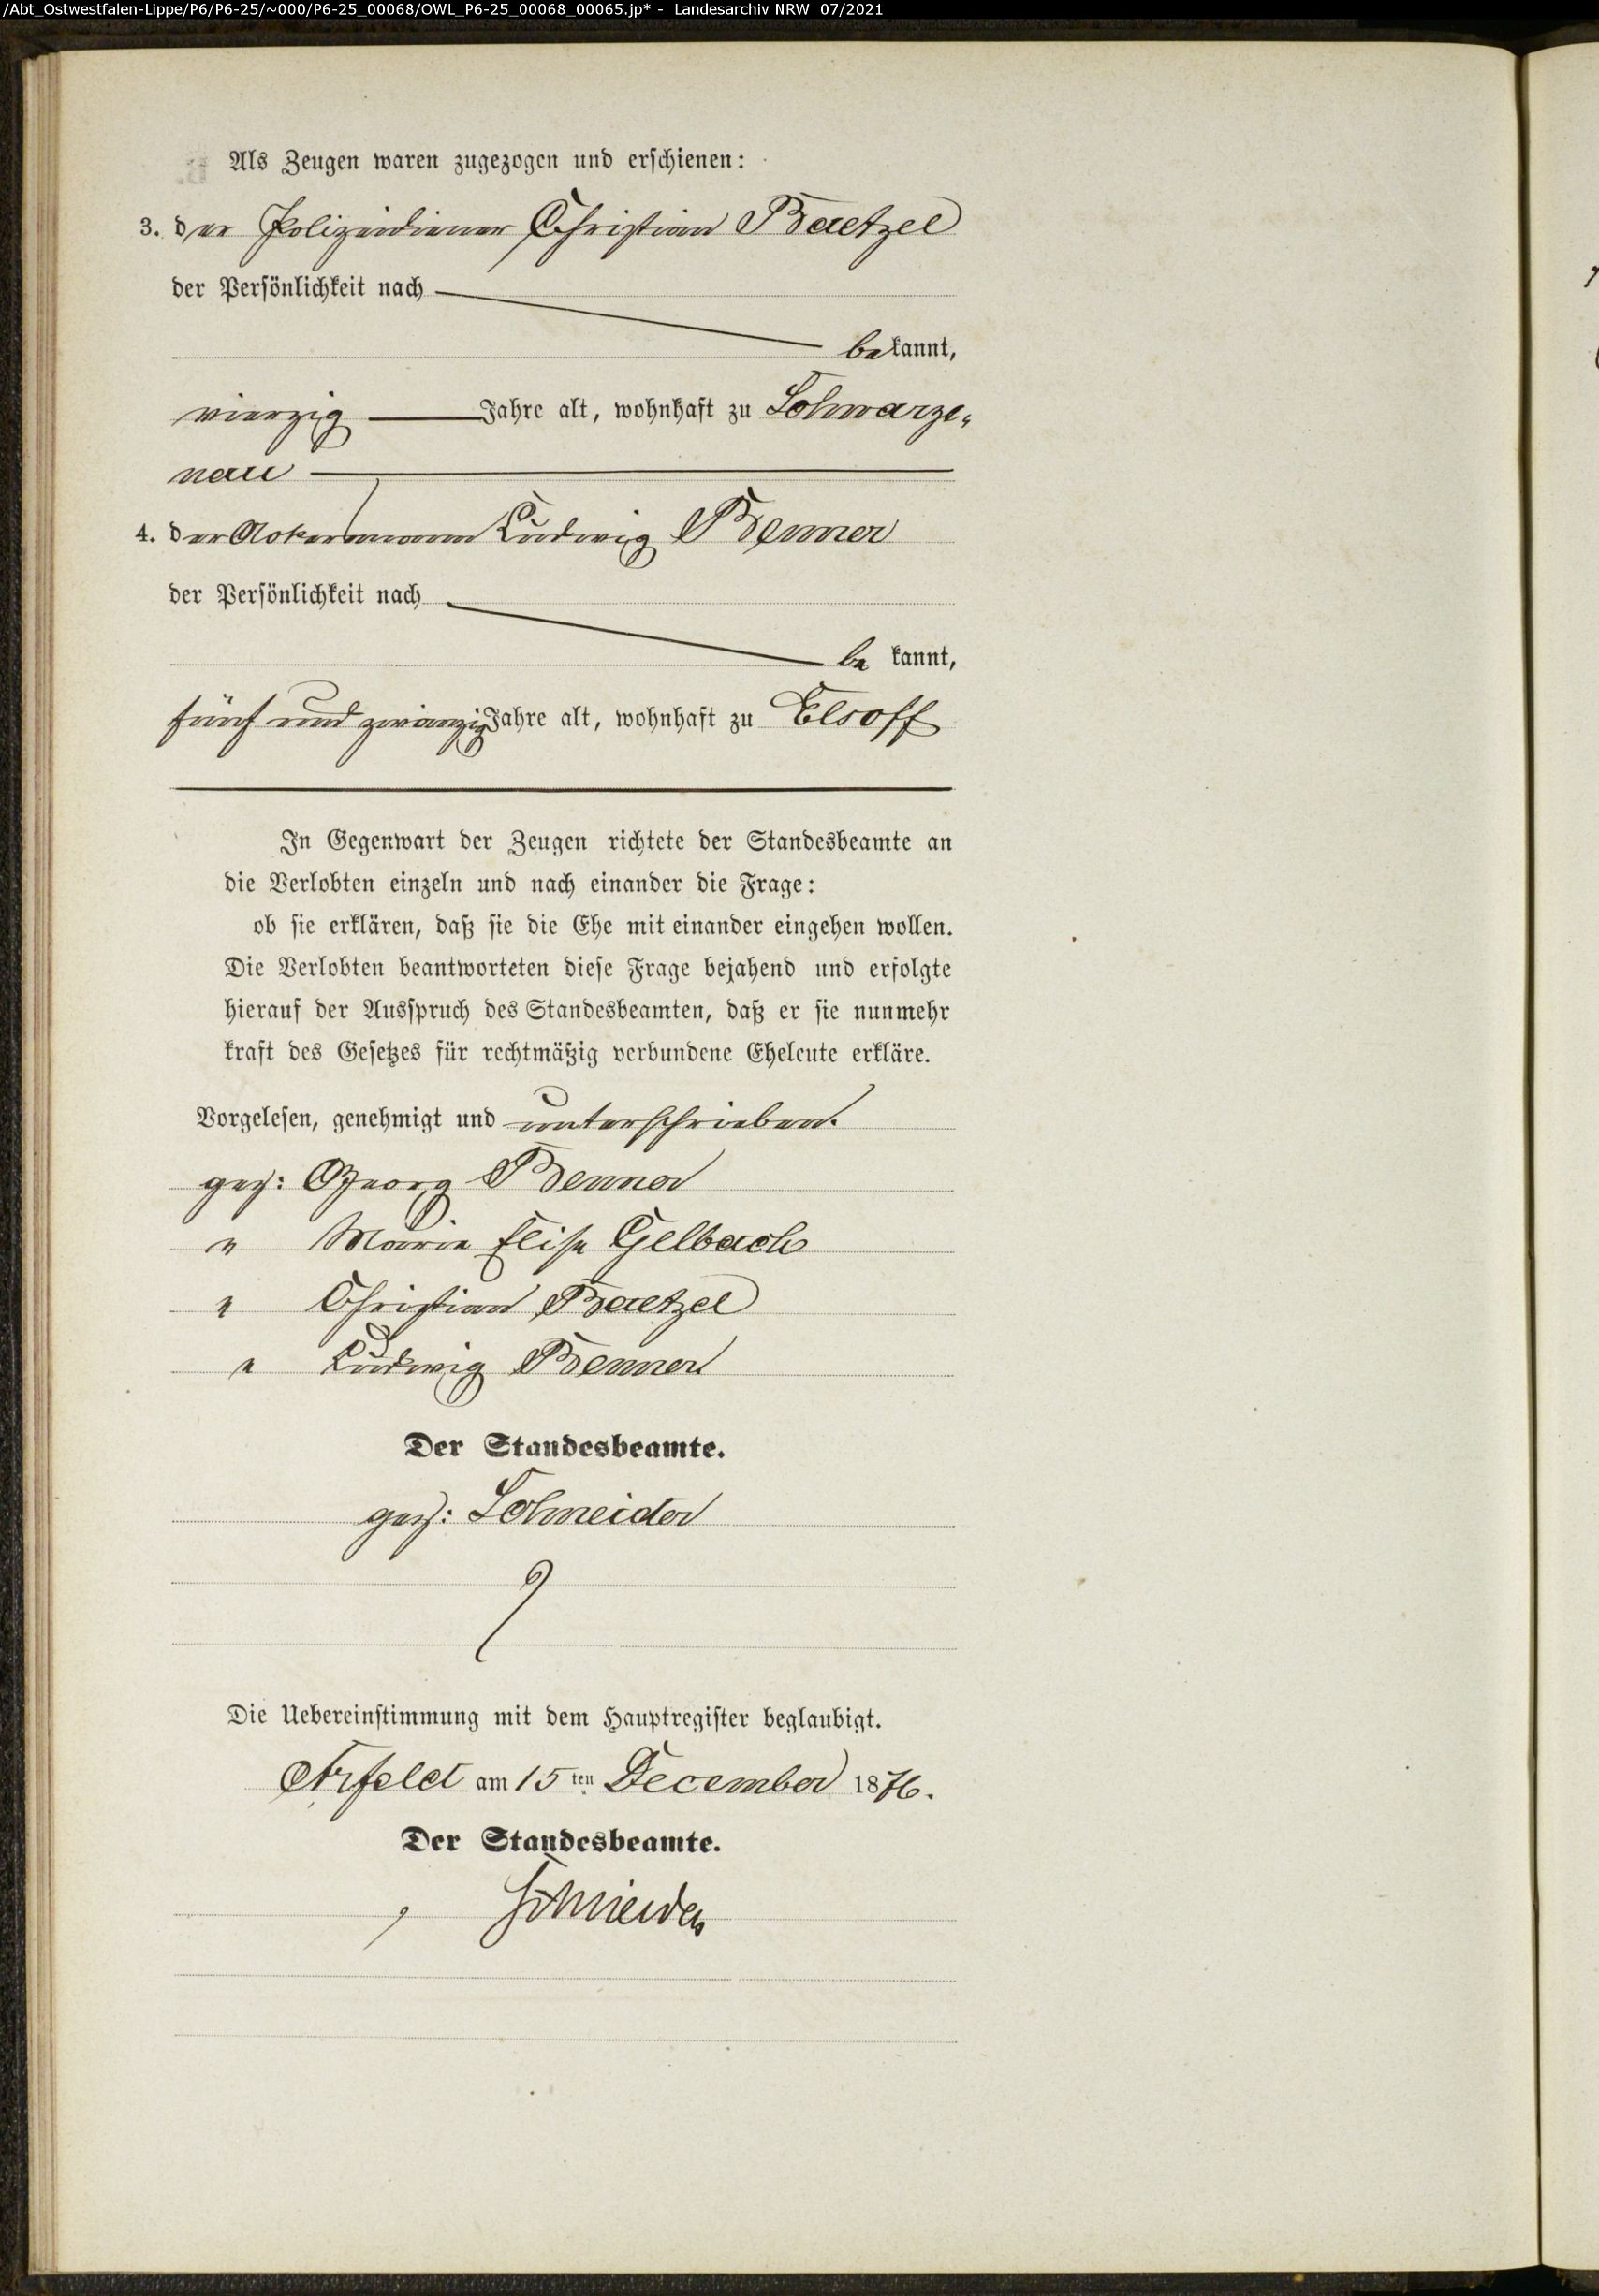 /Abt_Ostwestfalen-Lippe/P6/P6-25/~000/P6-25_00068/OWL_P6-25_00068_00065.jp* - Landesarchiv NRW 07/2021
Als Zeugen waren zugezogen und erschienen:
3. der Polizeidiener Christian Baetzel
der Persönlichkeit nach
bekannt,
vierzig Jahre alt, wohnhaft zu Schwarze-
nau
4. der Ackermann Ludwig Benner
der Persönlichkeit nach
be kannt,
fünf und zwanzig Jahre alt, wohnhaft zu Elsoff
In Gegenwart der Zeugen richtete der Standesbeamte an
die Verlobten einzeln und nach einander die Frage:
ob sie erklären, daß sie die Ehe mit einander eingehen wollen.
Die Verlobten beantworteten diese Frage bejahend und erfolgte
hierauf der Ausspruch des Standesbeamten, daß er sie nunmehr
kraft des Gesetzes für rechtmäßig verbundene Eheleute erkläre.
Vorgelesen, genehmigt und unterschrieben.
gez: Georg Benner
" Marie Elise Gelbach
" Christian Baetzel
" Ludwig Benner
Der Standesbeamte.
gez: Schneider
Die Uebereinstimmung mit dem Hauptregister beglaubigt.
Arfeld am 15ten December 1876.
Der Standesbeamte.
Schneider